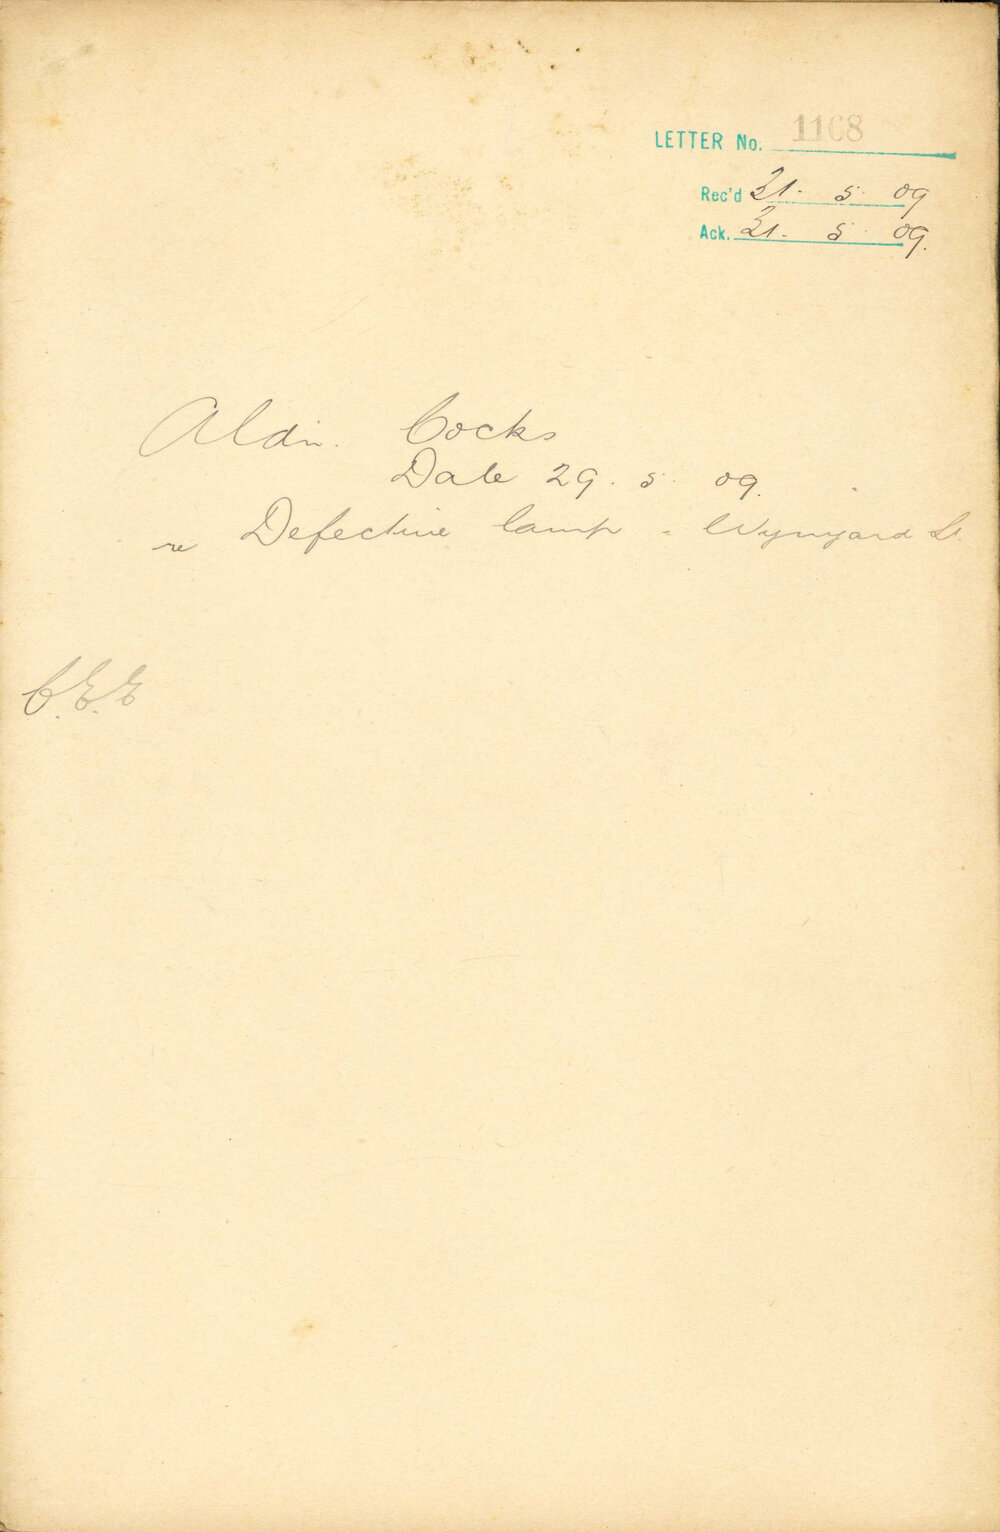 LETTER No. 1168
Rec'd 31. 5 09
Ack. 31. 5 09.
Aldn. Cocks
Date 29. 5. 09.
re Defective lamp - Wynyard St.
C.E.E